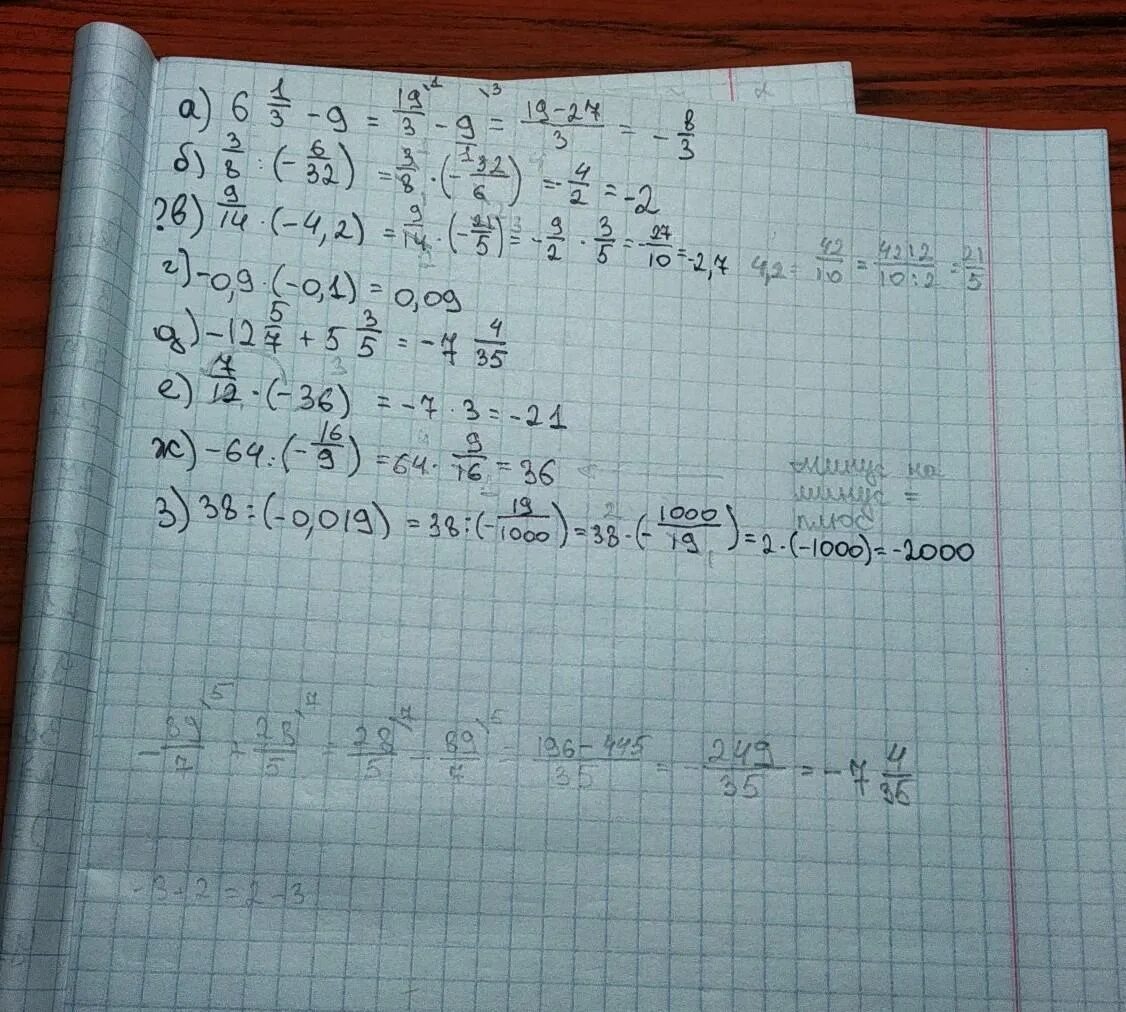 а) 6 1/3 - 9 = 19/3 - 9/1 = (19-27)/3 = - 8/3
б) 3/8 : (- 6/32) = 3/8 · (- 32/6) = - 4/2 = -2
?в) 9/14 · (-4,2) = 9/14 · (- 21/5) = - 9/2 · 3/5 = - 27/10 = -2,7 4,2 = 42/10 = 42:2/10:2 = 21/5
г) -0,9 · (-0,1) = 0,09
д) -12 5/7 + 5 3/5 = -7 4/35
е) 7/12 · (-36) = -7 · 3 = -21
ж) -64 : (- 16/9) = 64 · 9/16 = 36 минус на
минус =
плюс
з) 38 : (-0,019) = 38 : (- 19/1000) = 38 · (- 1000/19) = 2 · (-1000) = -2000
- 89/7 + 28/5 = 28/5 - 89/7 = (196-445)/35 = - 249/35 = -7 4/35
-3+2=2-3